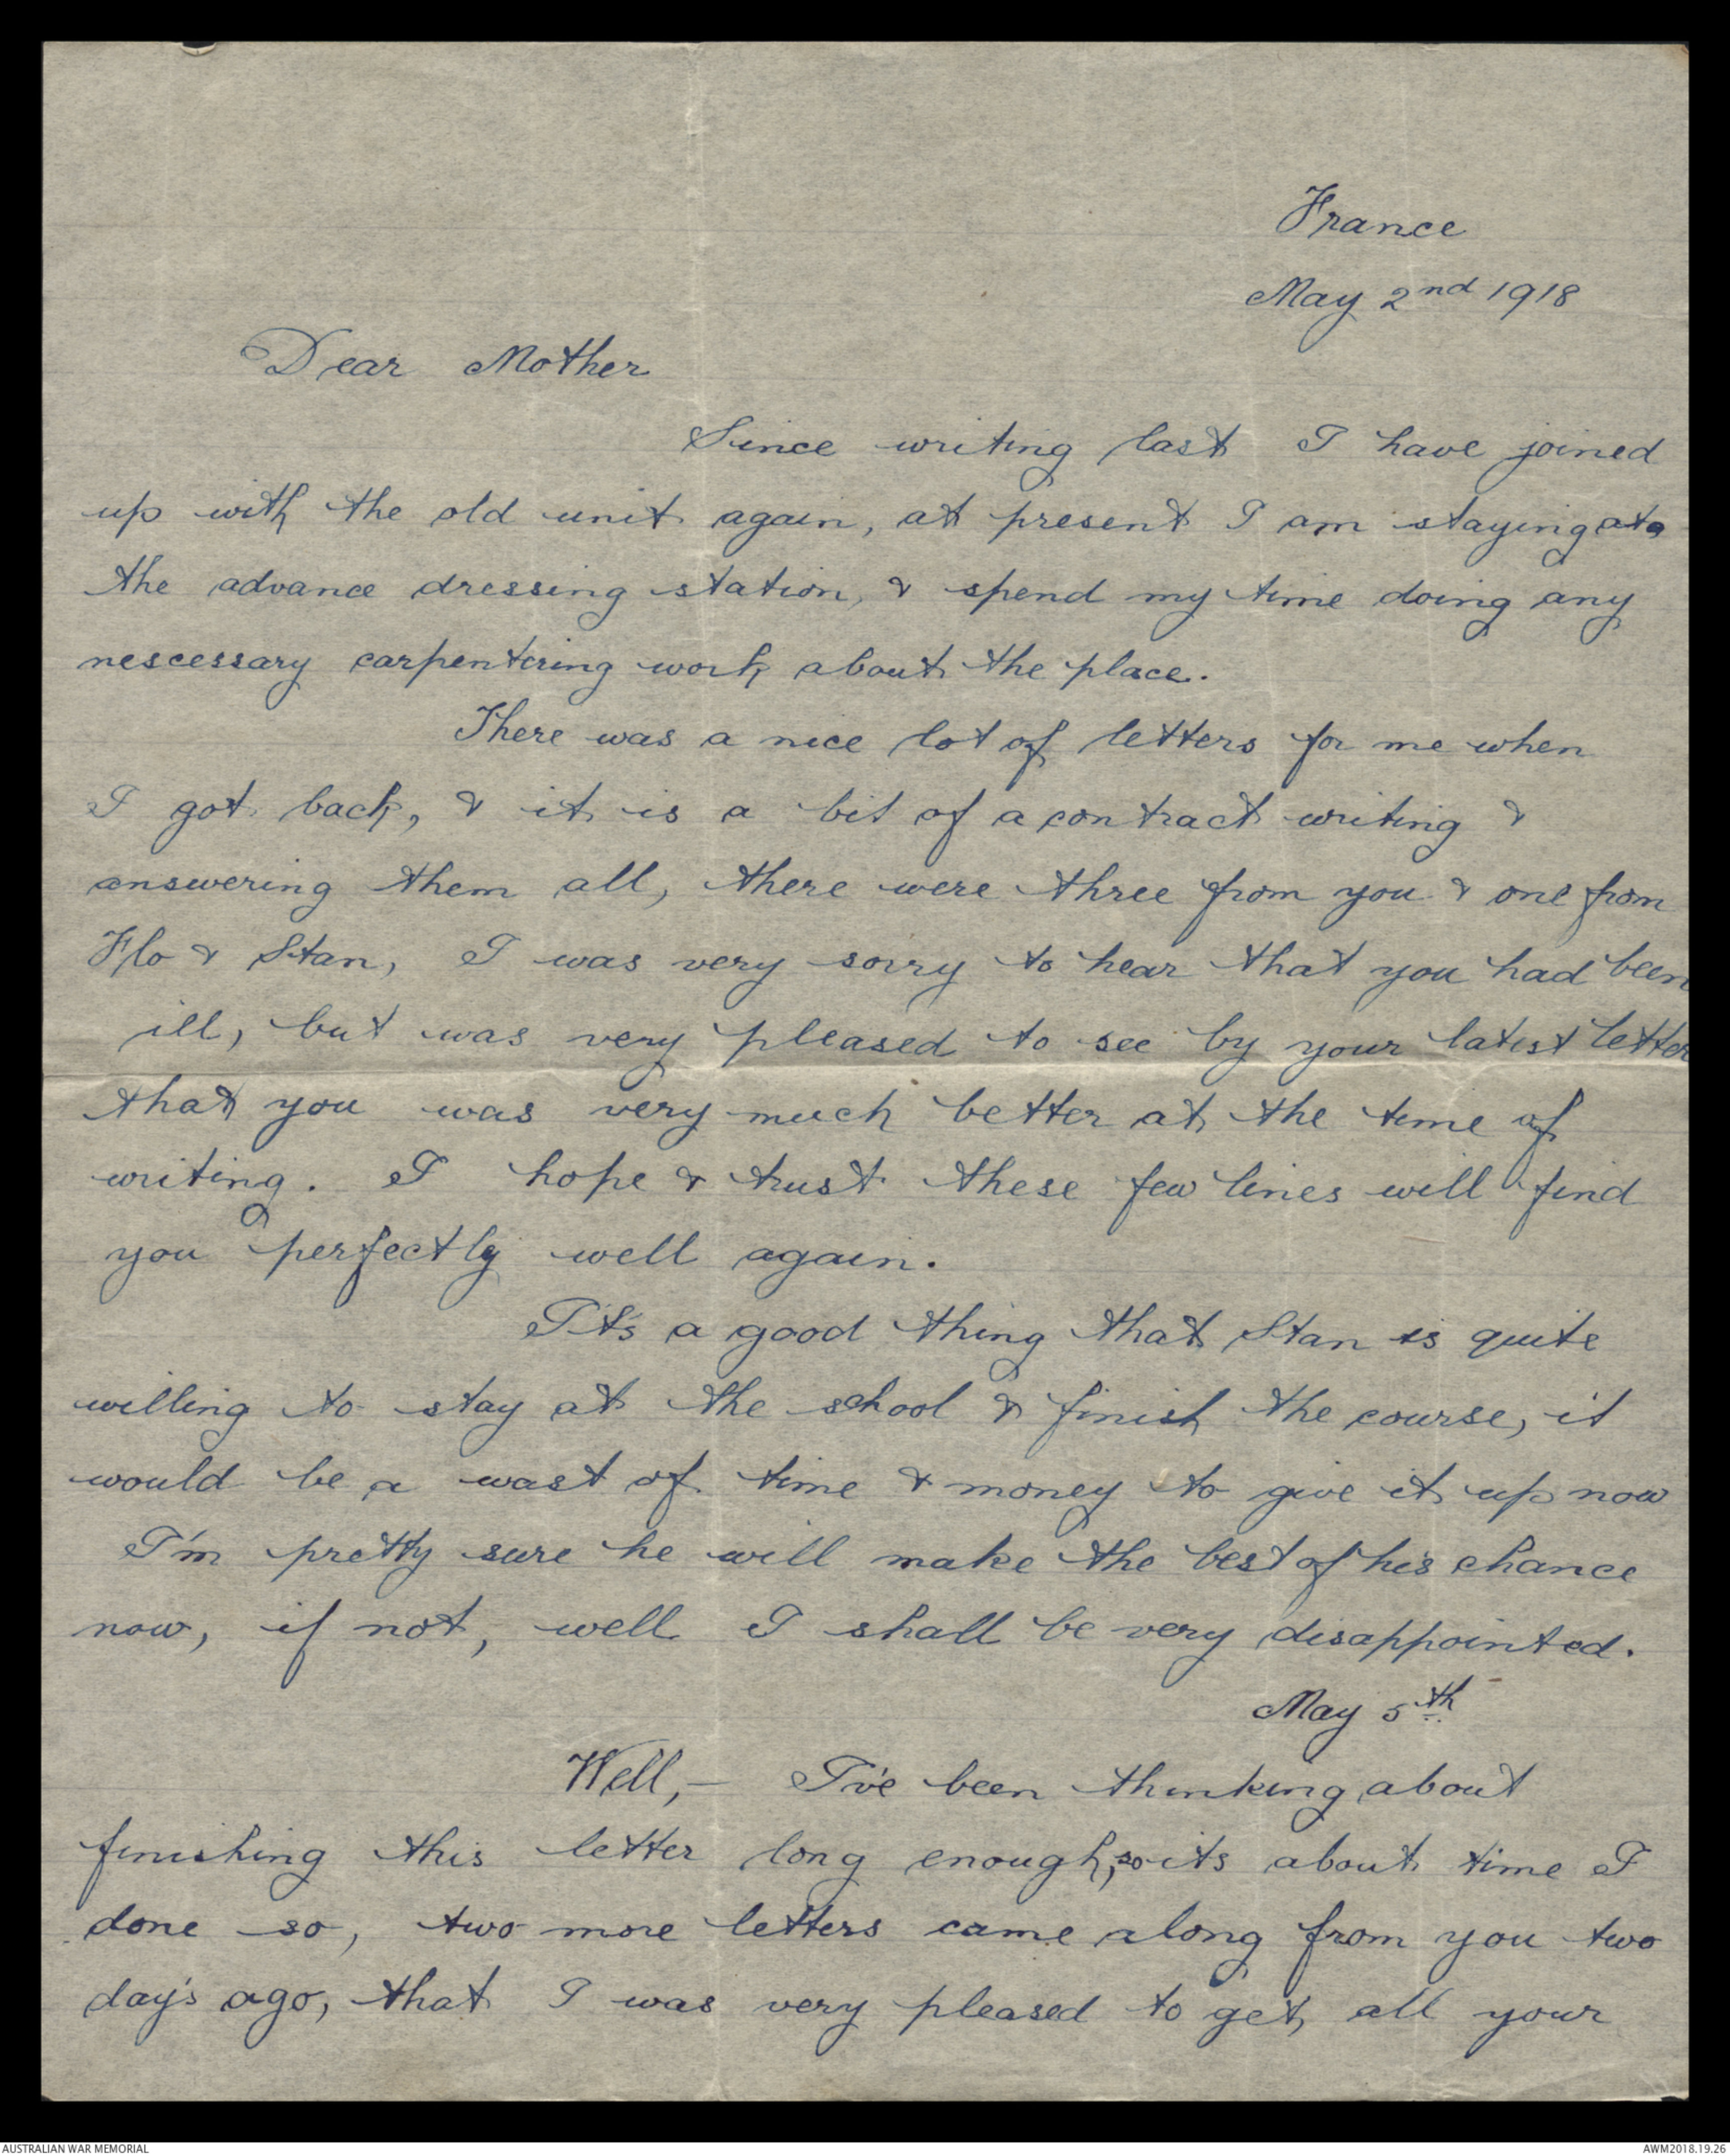 France
May 2nd 1918
Dear Mother
Since writing last I have joined
up with the old unit again, at present I am staying at
the advance dressing station, & spend my time doing any
nescessary carpentering work about the place.
There was a nice lot of letters for me when
I got back, & it is a bit of a contract writing &
answering them all, there were three from you & one from
Flo & Stan, I was very sorry to hear that you had been
ill, but was very pleased to see by your latest letter
that you was very much better at the time of
writing. I hope & trust these few lines will find
you perfectly well again.
It's a good thing that Stan is quite
willing to stay at the school & finish the course, it
would be a wast of time & money to give it up now
I'm pretty sure he will make the best of his chance
now, if not, well I shall be very disappointed.
May 5th
Well,— I've been thinking about
finishing this letter long enough, so its about time I
done so, two more letters came along from you two
day's ago, that I was very pleased to get, all your
AUSTRALIAN WAR MEMORIAL
AWM2018.19.26